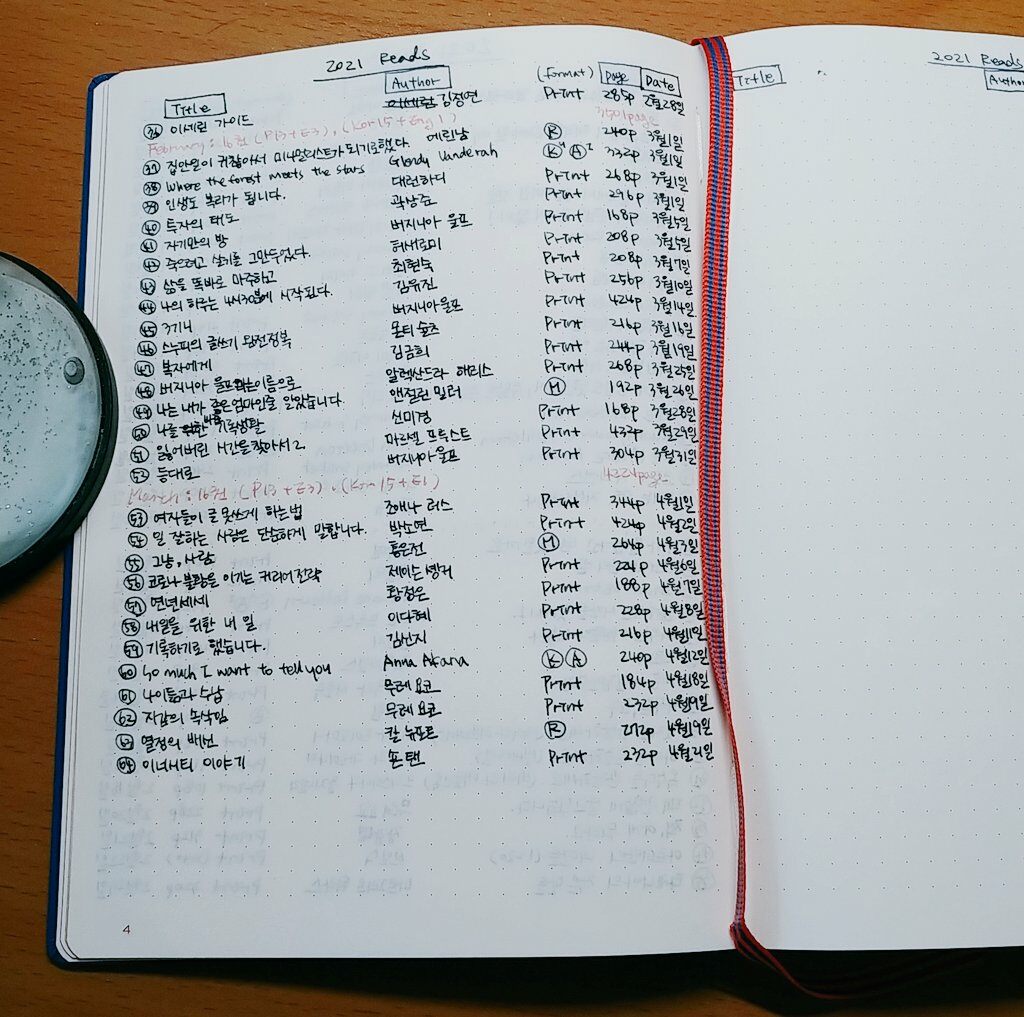 2021 Reads
Title Author (format) page Date
36 이세린 가이드 김정연 Print 285p 2월28일
February : 16권 (P13+E3), (Kor15+Eng1) 3501page
37 집안일이 귀찮아서 미니멀리스트가 되기로 했다. 에린남 R 240p 3월1일
38 Where the forest meets the stars Glendy Vanderah K A 332p 3월1일
39 인생도 복리가 됩니다. 대런 하디 Print 268p 3월1일
40 투자의 태도 곽상준 Print 296p 3월1일
41 자기만의 방 버지니아 울프 Print 168p 3월5일
42 죽으려고 살기를 그만두었다. 허새로미 Print 208p 3월5일
43 삶을 똑바로 마주하고 최현숙 Print 208p 3월7일
44 나의 하루는 4시30분에 시작된다. 김유진 Print 256p 3월10일
45 3기니 버지니아 울프 Print 424p 3월14일
46 스누피의 글쓰기 완전정복 몬티 슐츠 Print 216p 3월16일
47 복자에게 김금희 Print 244p 3월19일
48 버지니아 울프라는 이름으로 알렉산드라 해리스 Print 268p 3월25일
49 나는 내가 좋은 엄마인줄 알았습니다. 앤절린 밀러 M 192p 3월26일
50 나를 위한 기록생활 신미경 Print 168p 3월28일
51 잃어버린 시간을 찾아서 2 마르셀 프루스트 Print 432p 3월29일
52 등대로 버지니아 울프 Print 304p 3월31일
March : 16권 (P13+E3), (Kor15+E1) 4224page
53 여자들이 글 못쓰게 하는 법 조애나 러스 Print 344p 4월1일
54 일 잘하는 사람은 단순하게 말합니다. 박소연 Print 424p 4월2일
55 그냥, 사람 홍은전 M 264p 4월3일
56 코로나 불황을 이기는 커리어 전략 제이슨 솅커 Print 224p 4월6일
57 연년세세 황정은 Print 188p 4월7일
58 내일을 위한 내 일 이다혜 Print 228p 4월8일
59 기록하기로 했습니다. 김신지 Print 216p 4월11일
60 So much I want to tell you Anna Akana K A 240p 4월12일
61 나이듦과 수납 무레 요코 Print 184p 4월18일
62 지갑의 속삭임 무레 요코 Print 232p 4월19일
63 열정의 배신 칼 뉴포트 R 272p 4월19일
64 이너시티 이야기 숀 탠 Print 232p 4월21일
4
2021 Reads
Title